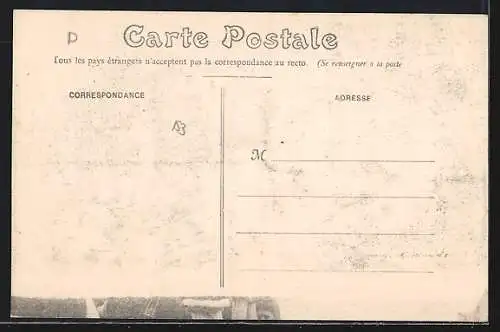 D
Carte Postale
Tous les pays étrangers n'acceptent pas la correspondance au recto. (Se renseigner à la poste
CORRESPONDANCE
ADRESSE
M